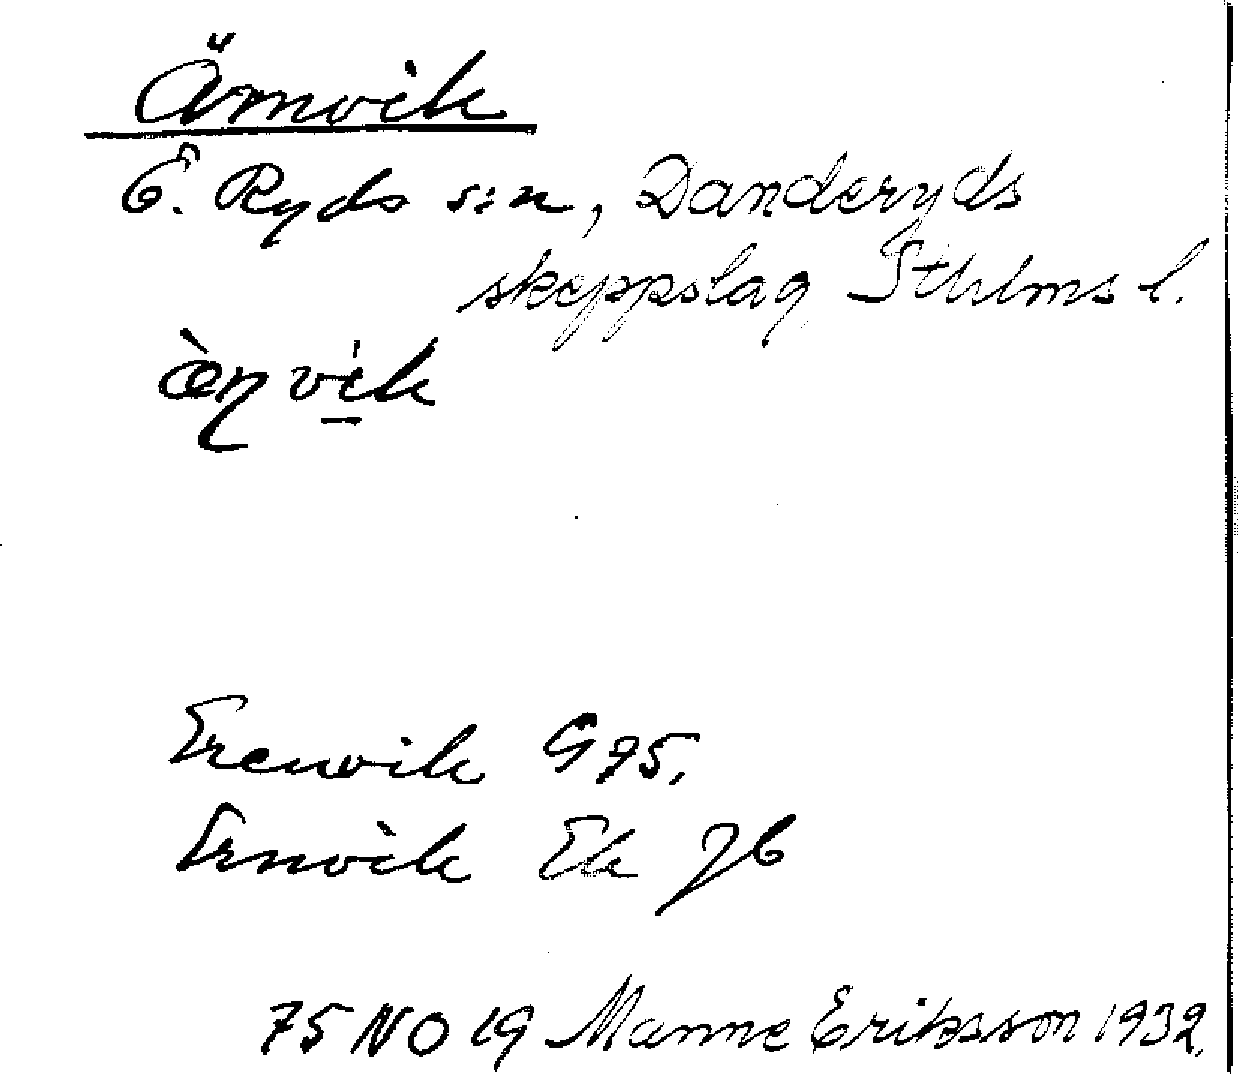 Ärnvik
Ö. Ryds s:n, Danderyds
skeppslag Sthlms l.
æ̀ɳvi̠k
Erenvik G 75.
Ernvik Ek Jb
75 NO 19 Manne Eriksson 1932.